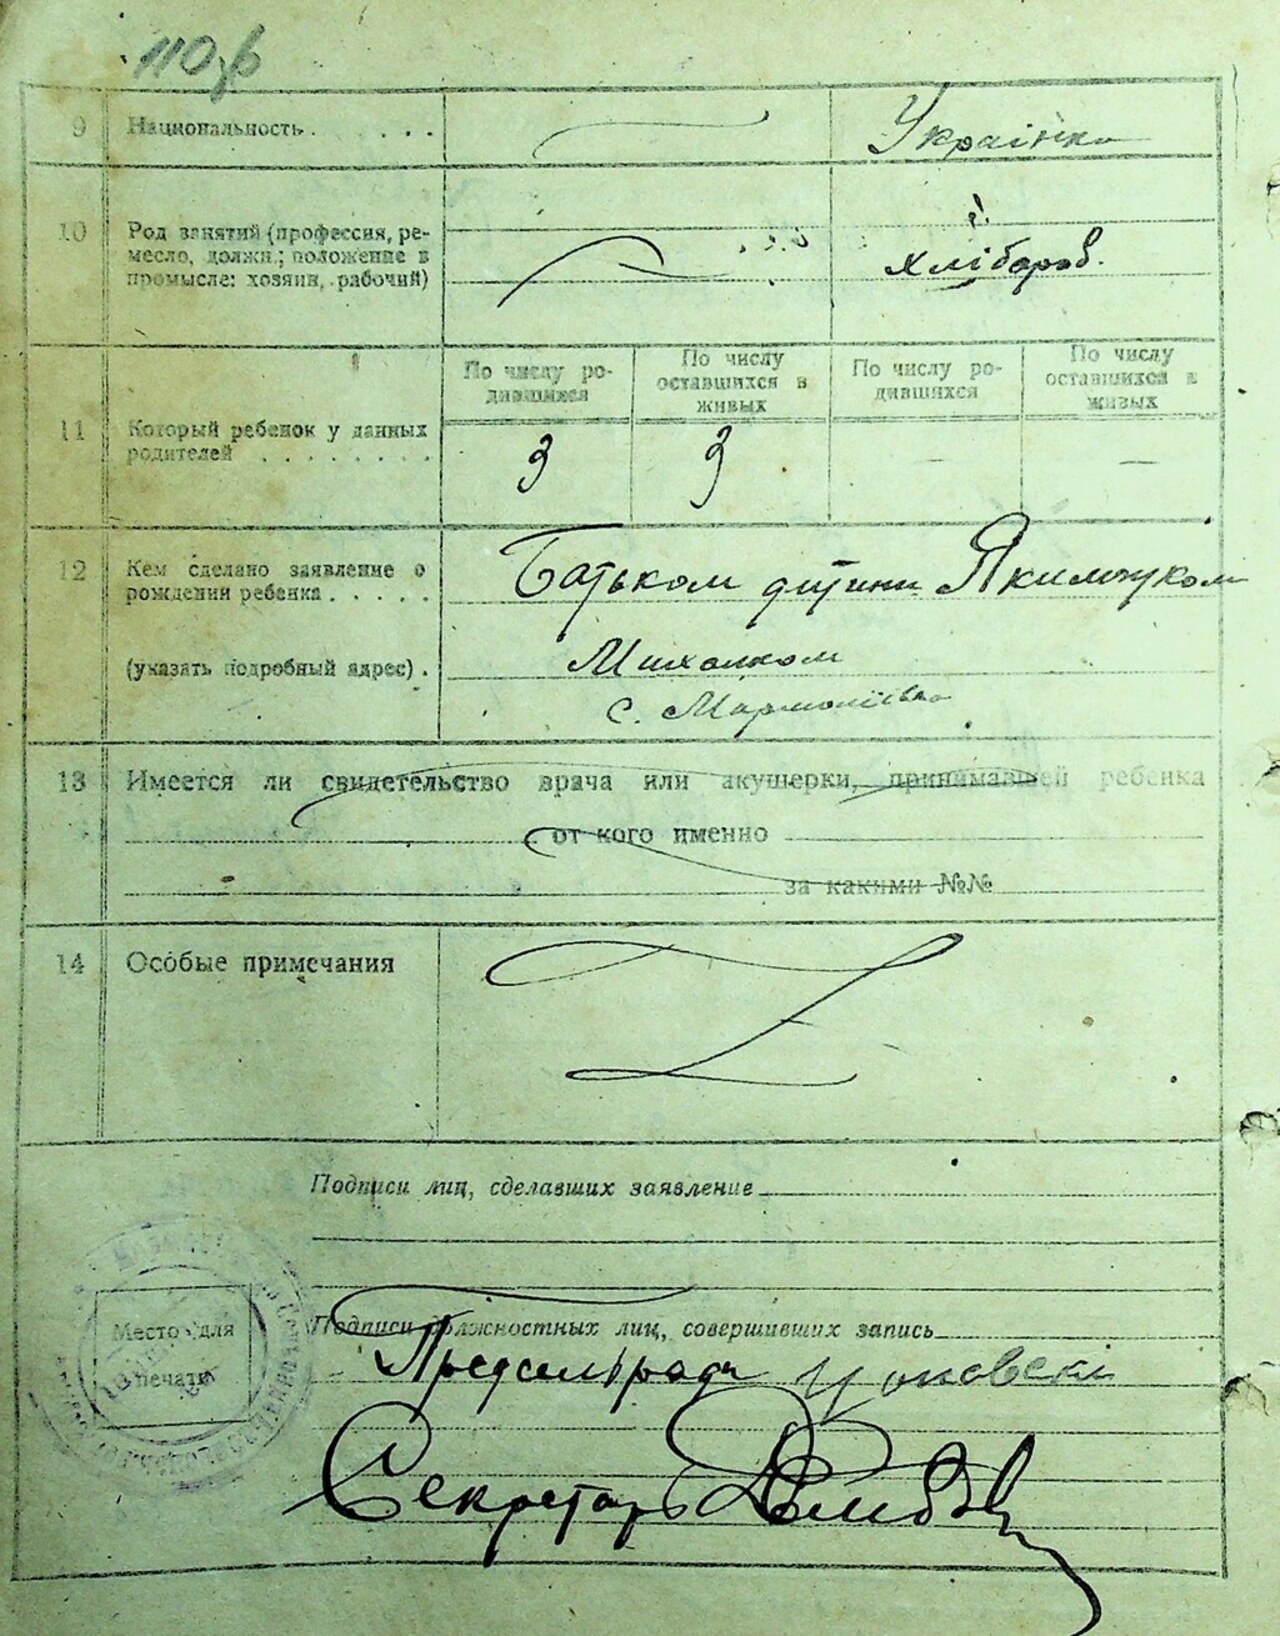 110зв
9 Национальность . . . . Українка
10 Род занятий (профессия, ре-
месло, должн.; положение в
промысле: хозяин, рабочий) хлібороб.
По числу ро-
дившихся
По числу
оставшихся в
живых
По числу ро-
дившихся
По числу
оставшихся в
живых
11 Который ребенок у данных
родителей . . . . . . . . 3 3 — —
12 Кем сделано заявление о
рождении ребенка . . . . . Батьком дитини Якимчуком
(указать подробный адрес) . Михалком
с. Мармоліївка
13 Имеется ли свидетельство врача или акушерки, принимавшей ребенка
от кого именно
за какими №№
14 Особые примечания
Подписи лиц, сделавших заявление
Подписи должностных лиц, совершивших запись
Место для
печати
Предсельради
Секретарь